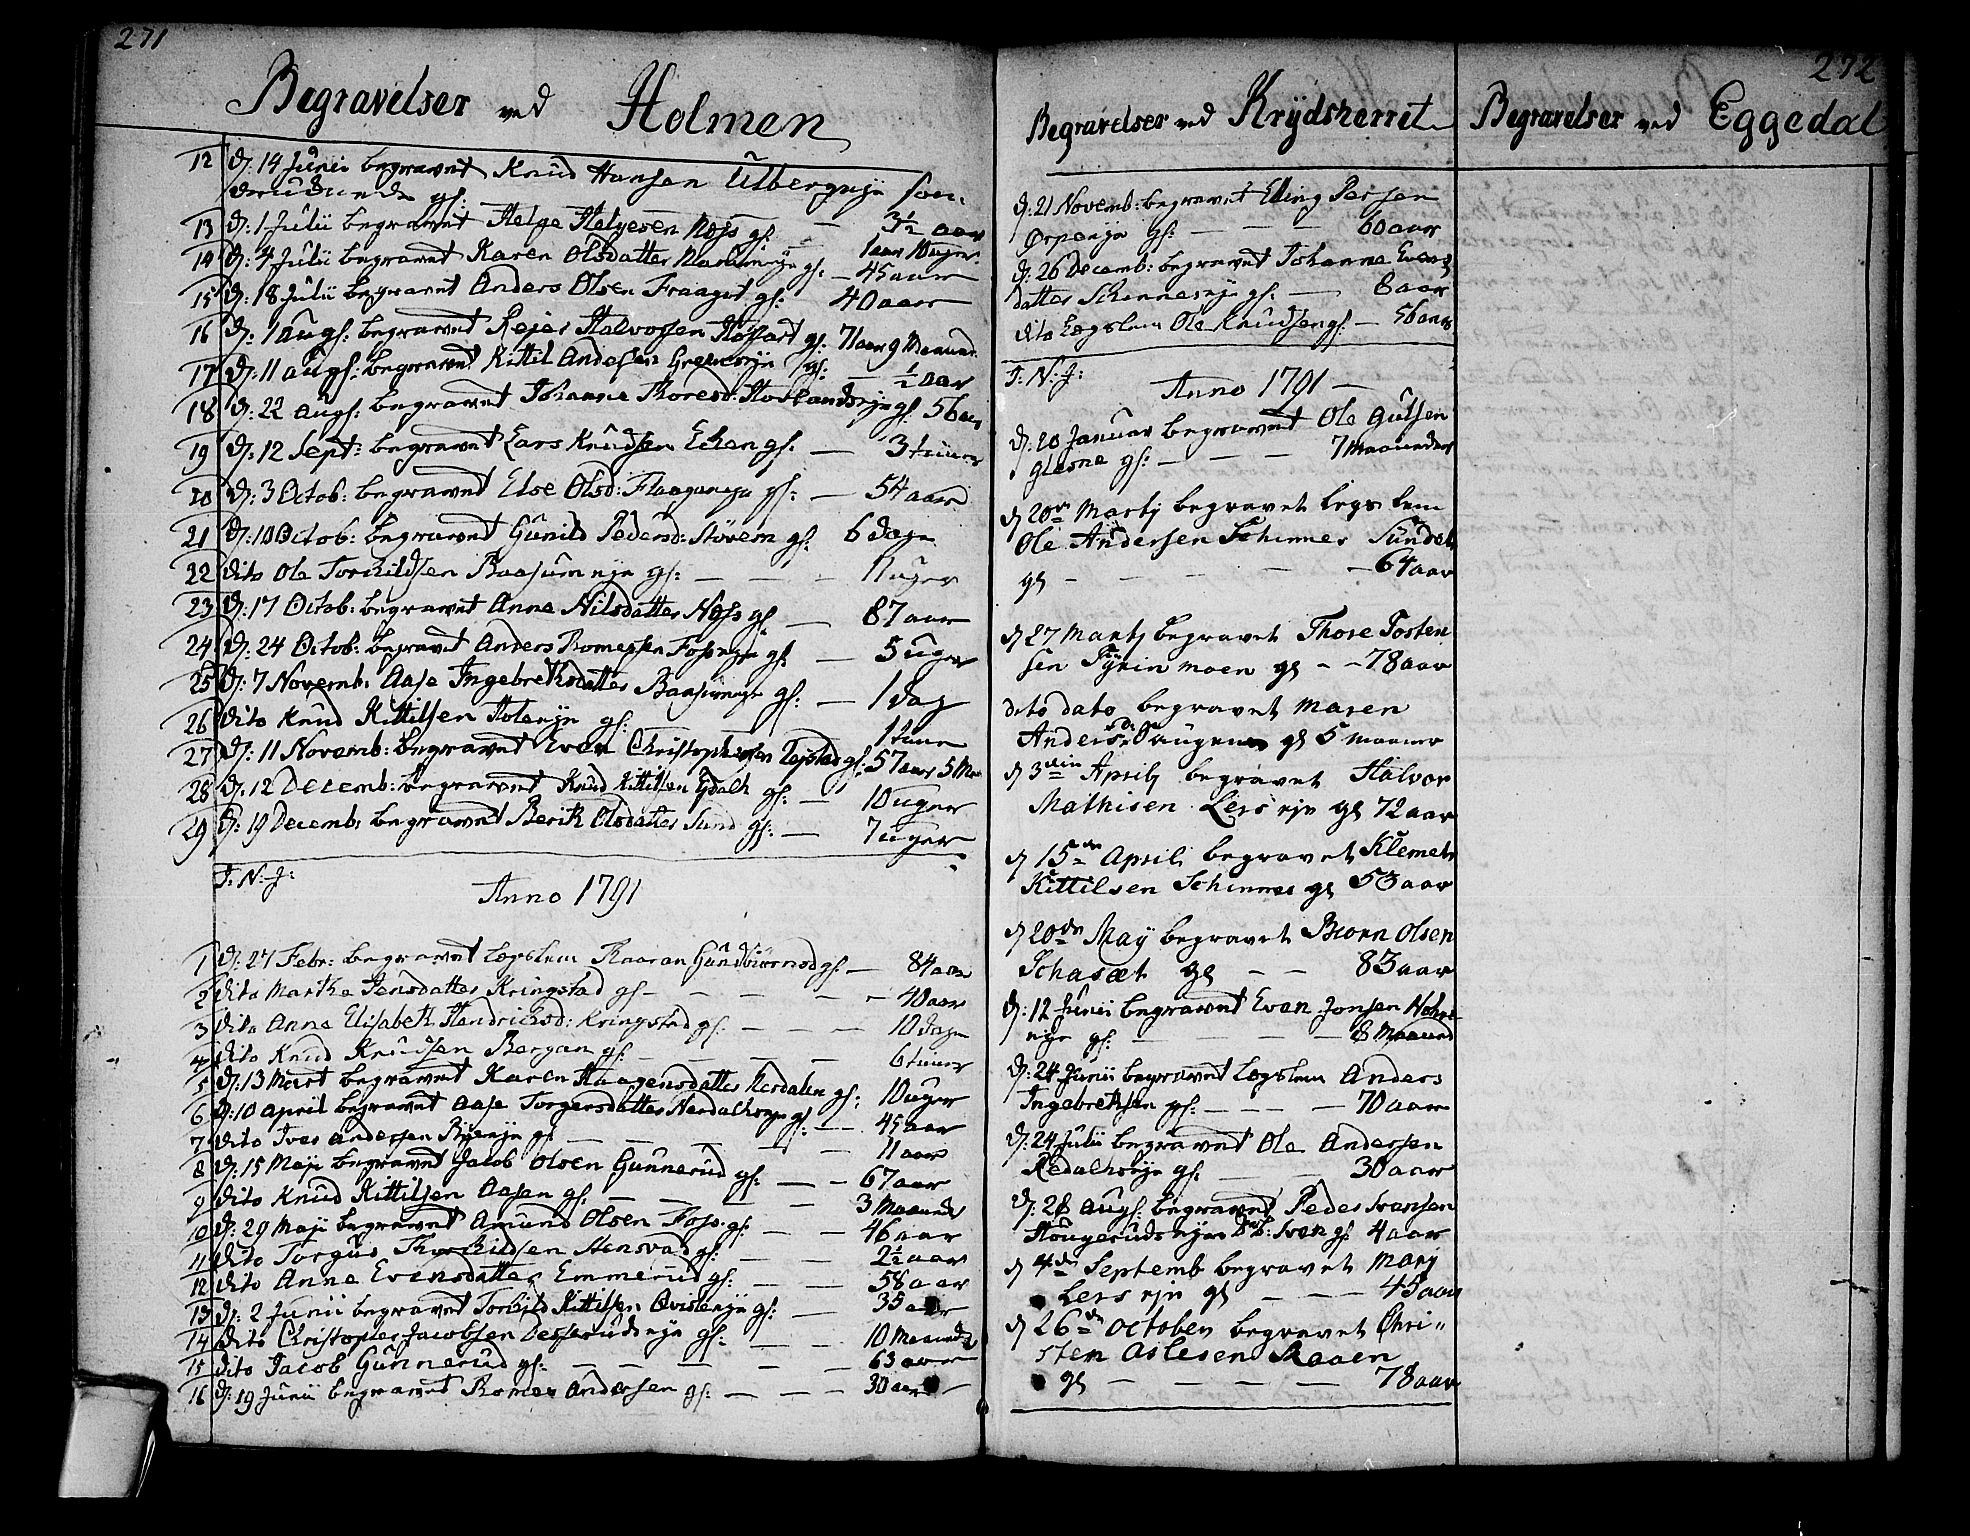 271
Begravelser ved Holmen
12 d: 14 Junii begravet Knud Hansen Ulbergeje
gf:
13 d: 1 Julii begravet Helge Helgesen Noss gf: — 3½ aar
14 d: 4 Julii begravet Karen Olsdatter gf: — 45 aar
15 d: 18 Julii begravet Anders Olsen Fraaget gf: 40 aar
16 d: 1 Augs: begravet Rejer Halvorsen gf: 71 aar 9 Maaned
17 d: 11 Augs: begravet Kittil Andersen gf: — ½ aar
18 d: 22 Augs: begravet Johanne Thoresd: gf: 56 aar
19 d: 12 Sept: begravet Lars Knudsen gf: — 3 timer
20 d: 3 Octob: begravet Else Olsd: gf: — 54 aar
21 d: 10 Octob: begravet Gunild Pedersd: Støvern gf: 6 dage
22 dito Ole Torkildsen Baasumeje gf: — — — 11 uger
23 d: 17 Octob: begravet Anne Nilsdatter Noss gf — 87 aar
24 d: 24 Octob: begravet Anders Fosseje gf — 5 uger
25 d: 7 Novemb: Aase Ingebretsdatter Baasumeje gf: — 1 dag
26 dito Knud Kittilsen Holeeje gf: — 1 time
27 d: 11 Novemb: begravet Even Christophersen gf: 57 aar 5 M
28 d: 12 Decemb: begravet Knud Kittilsen gf: — 10 uger
29 d: 19 Decemb: begravet Berit Olsdatter Sund gf: — 7 uger
T: N: J:
Anno 1791
1 d: 27 Febr: begravet Lægslem gf: — 84 aar
2 dito Marthe Jensdatter Kringstad gf — — — — — 40 aar
3 dito Anne Elisabeth Hendrichsd: Kringstad gf: — — — 10 dage
4 dito Knud Knudsen Bergan gf — — — — 6 timer
5 d: 13 Mart begravet Karen Haagensdatter gf: 10 uger
6 d: 10 April begravet Aase Torgersdatter gf: — — 45 aar
7 dito Iver Andersen gf — — — — 11 aar
8 d: 15 Maji begravet Jacob Olsen Gunnerud gf: — — 67 aar
9 dito Knud Kittilsen Aasen gf: — — — — 3 Maaned
10 d: 29 Maji begravet Amund Olsen Foss gf: — — 46 aar
11 dito Torgus Thorkildsen gf: — — 2½ aar
12 dito Anne Evensdatter Emmerud gf: — — 58 aar
13 d: 2 Junii begravet Torkild Kittilsen gf: — 35 aar
14 dito Christopher Jacobsen gf: — — 10 Maaned
15 dito Jacob Gunnerud gf: — — — — — 63 aar
16 d: 19 Junii begravet Andersen gf: — — — 30 aar
Begravelser ved Krydsherret
d: 21 Novemb: begravet Elling Persen
gf: — — — 60 aar
d: 26 Decemb: begravet Johanne Evens
datter gf: — 8 aar
dito Lægslem Ole Knudsen gf: — 56 aar
T: N: J:
Anno 1791 —
d: 20 Januar begravet Ole Gulsen
Glesne gf: — — — 7 Maaneder
d 20de Martj begravet Legs lem
Ole Andersen
gf — — — — — — 64 aar
d 27 Martj begravet Thore Tosten
sen moen gf — — 78 aar
dito dato begravet Maren
Andersd: gf 5 maaner
d 3die Aprilj begravet Halvor
Mathisen Lers eje gf 72 aar
d 15de April begravet Klemet
Kittilsen Schinnes gf 53 aar
d 20de May begravet Biorn Olsen
gf — — 83 aar
d: 12 Junii begravet Even Jonsen
eje gf: — — — — 8 Maaned
d: 24 Junii begravet Lægslem Anders
Ingebretsen gf: — — — — 70 aar
d: 24 Julii begravet Ole Andersen
Redalseje gf: — — — 30 aar
d: 28 Augs: begravet Peder Iversen
gf 4 aar
d 4de Septemb begravet Marj
Lers eje gf — — — 45 aar
d 26de October begravet Chri„
sten Aslesen Raaen
gf — — — — — 78 aar
272
Begravelser ved Eggedal